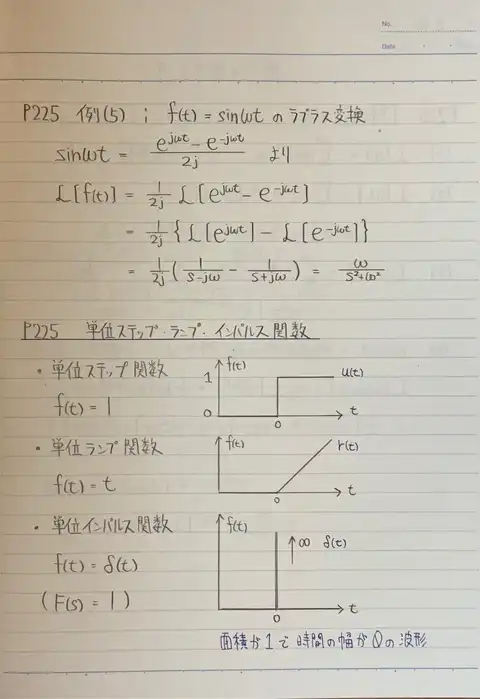 No.
Date
P225 例(5) ; f(t) = sinωt の ラプラス変換
sinωt = (e^{jωt} - e^{-jωt}) / 2j より
L[f(t)] = 1/2j L[e^{jωt} - e^{-jωt}]
= 1/2j {L[e^{jωt}] - L[e^{-jωt}]}
= 1/2j (1/(s-jω) - 1/(s+jω)) = ω/(s²+ω²)
P225 単位ステップ・ランプ・インパルス関数
・単位ステップ関数
f(t) = 1
f(t)
1
0
0
t
u(t)
・単位ランプ関数
f(t) = t
f(t)
r(t)
0
t
・単位インパルス関数
f(t) = δ(t)
(F(s) = 1)
f(t)
↑∞ δ(t)
0
t
面積が1で時間の幅が0の波形